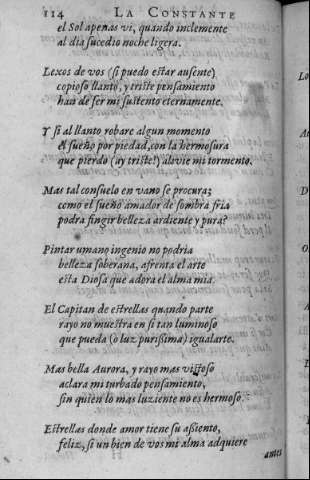 114 LA CONSTANTE
el Sol apenas vi, quãdo inclemente
al dia sucedio noche ligera.
Lexos de vos (si puedo estar ausente)
copioso llanto, y triste pensamiento
han de ser mi sustento eternamente.
Y si al llanto robare algun momento
el sueño por piedad, con la hermosura
que pierdo (ay triste!) alivie mi tormento.
Mas tal consuelo en vano se procura;
como el sueño amador de sombra fria
podra fingir belleza ardiente y pura?
Pintar umano ingenio no podria
belleza soberana, afrenta el arte
esta Diosa que adora el alma mia.
El Capitan de estrellas quando parte
rayo no muestra en si tan luminoso
que pueda (o luz purissima) igualarte.
Mas bella Aurora, y rayo mas vistoso
aclara mi turbado pensamiento,
sin quien lo mas luziente no es hermoso.
Estrellas donde amor tiene su assiento,
feliz, si un bien de vos mi alma adquiere
antes